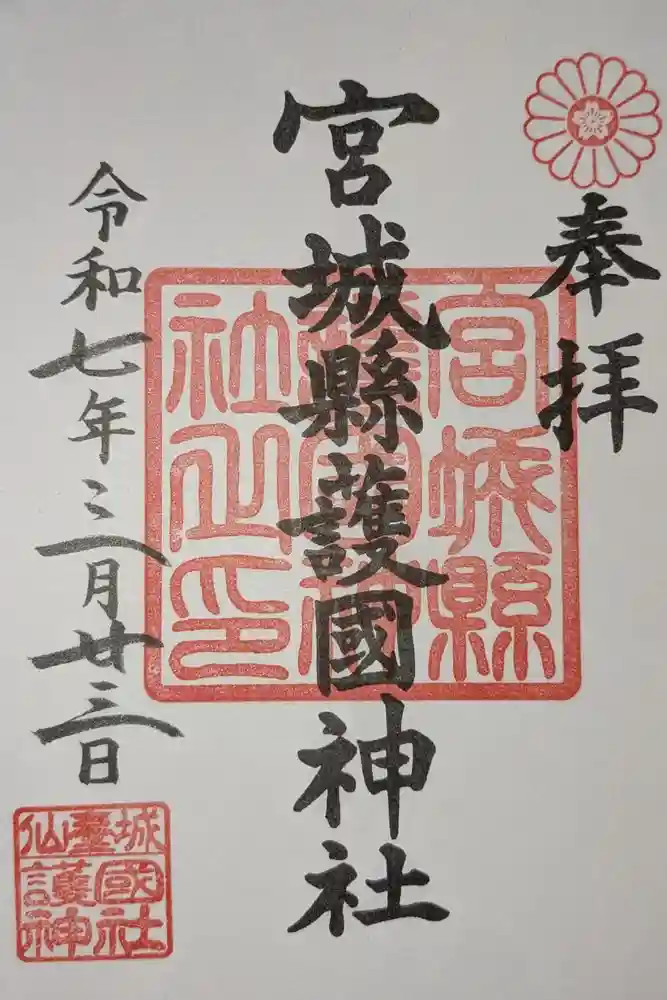 奉拝
宮城縣護國神社
宮城縣
護國神
社之印
令和七年三月廿三日
仙臺城
護國
神社